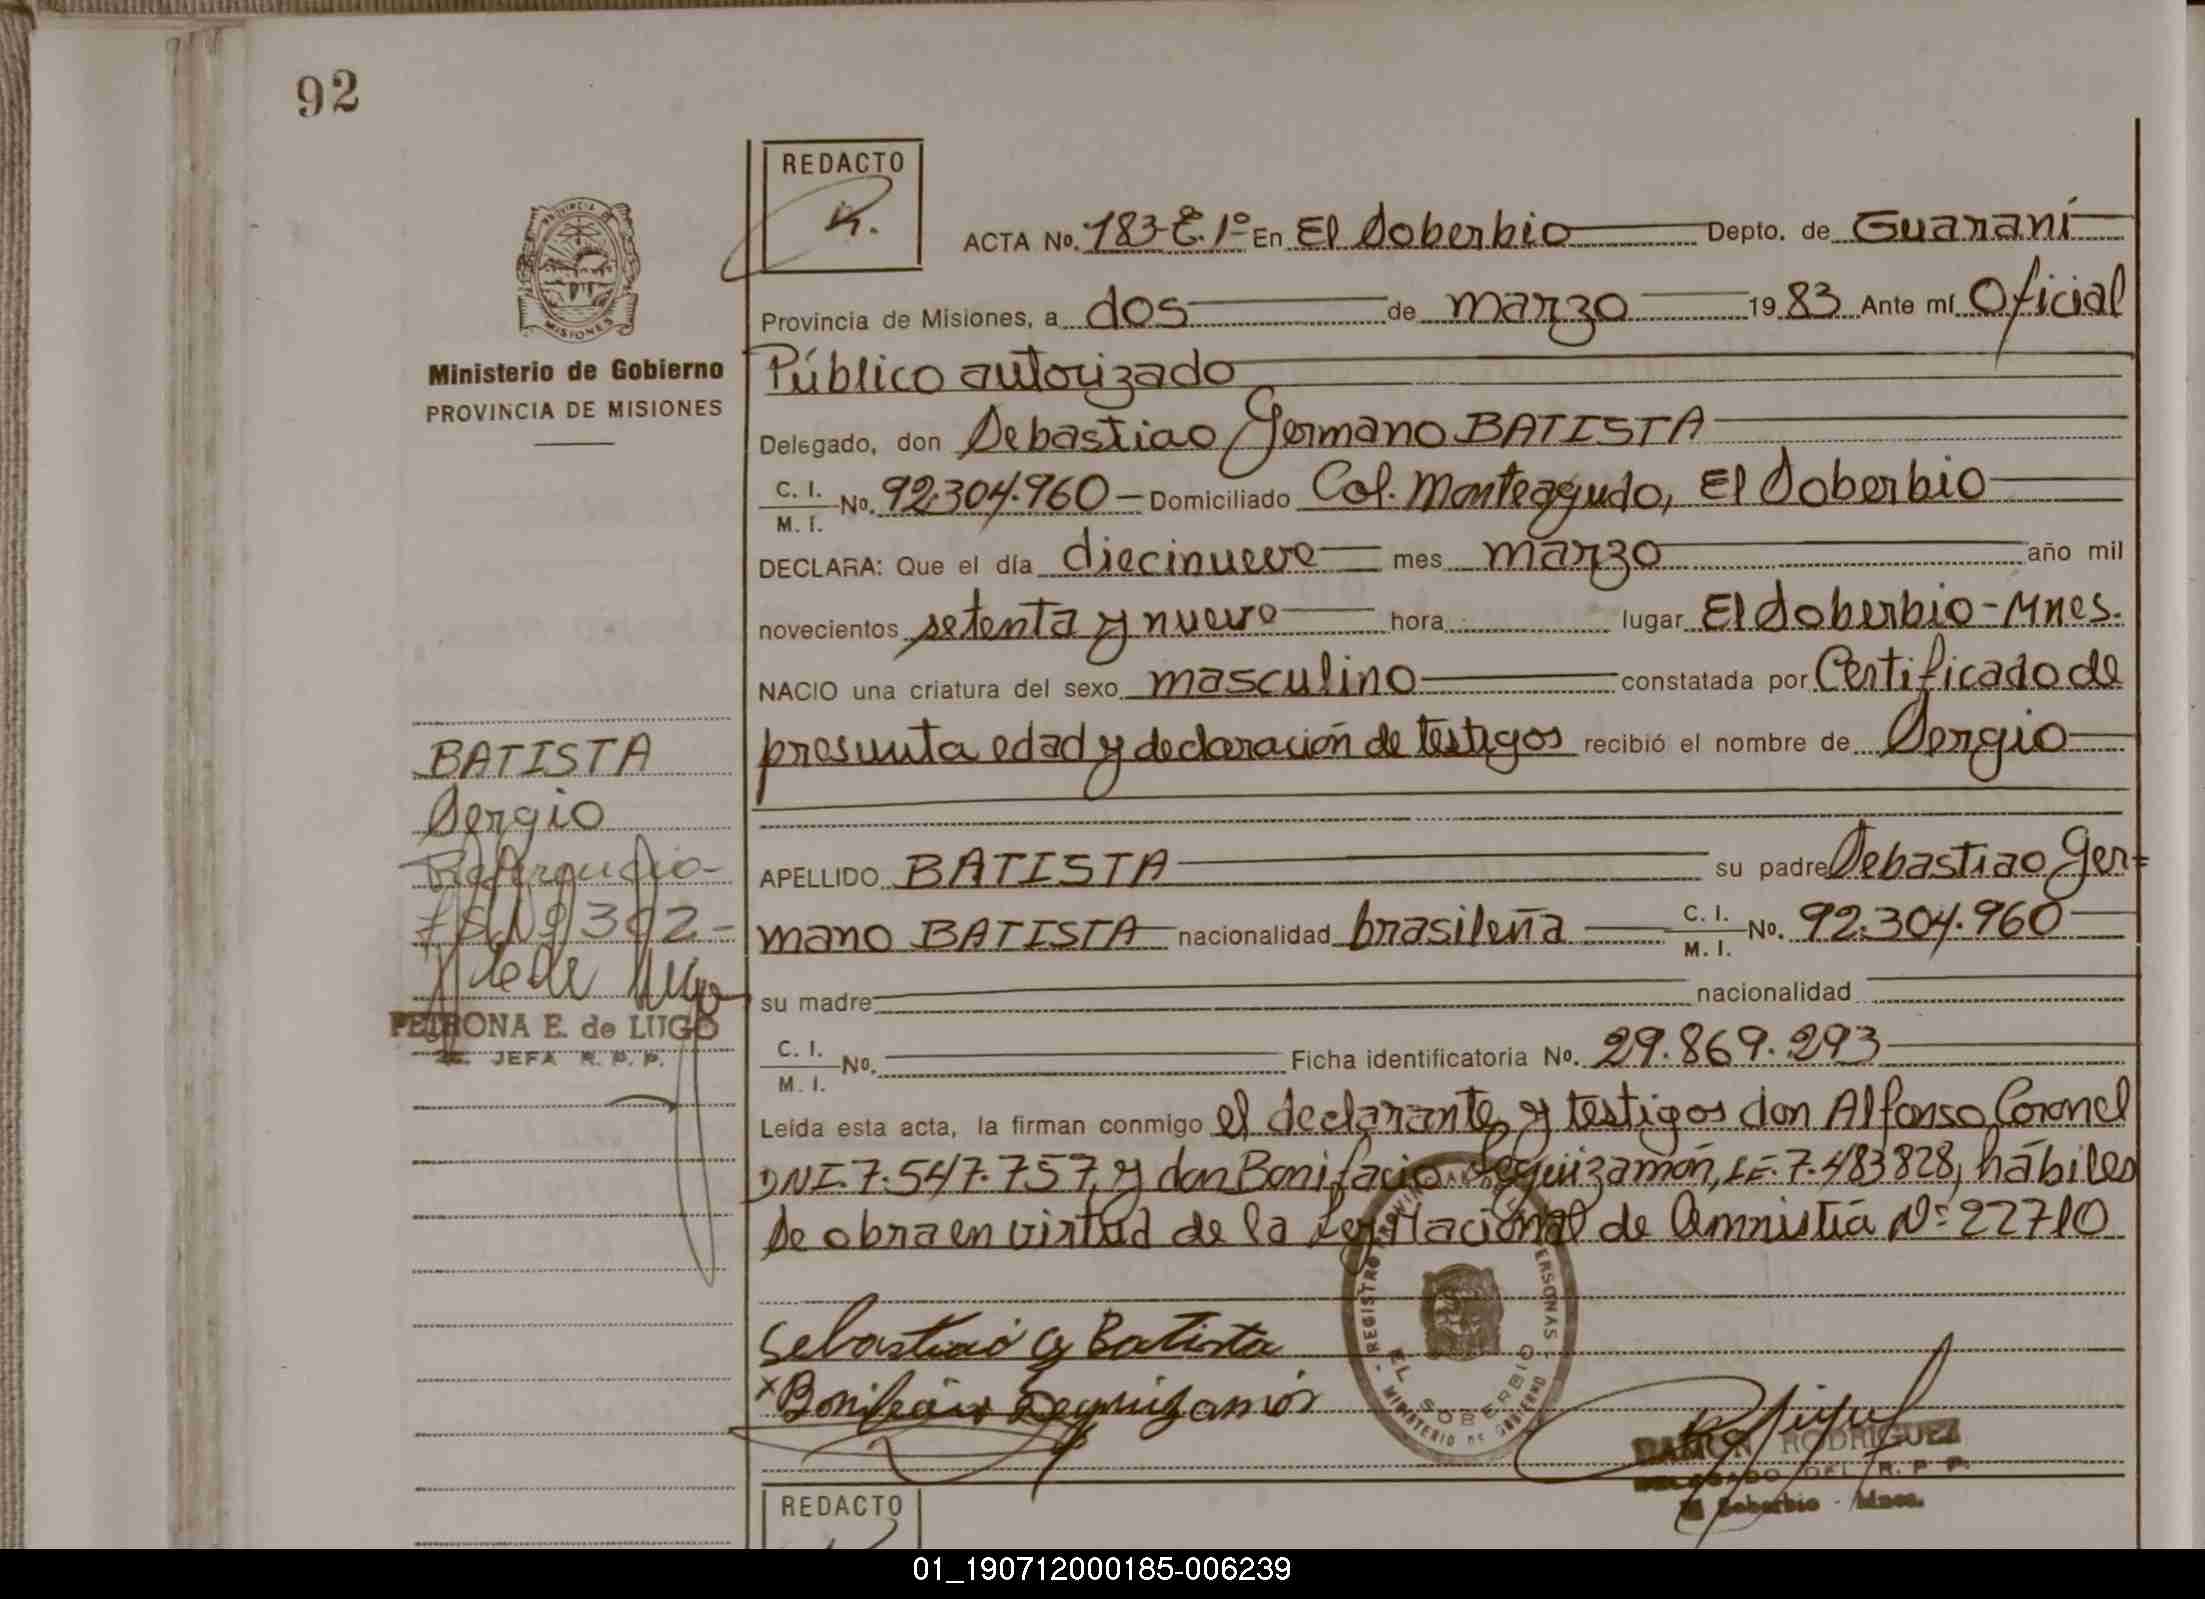 92
REDACTO
ACTA No. 183-E.1º En El Soberbio Depto. de Guaraní
Provincia de Misiones, a dos de marzo 1983 Ante mí Oficial
Público autorizado
Delegado, don Sebastiao Germano BATISTA
C. I. / M. I. No. 92.304.960 - Domiciliado Col. Monteagudo, El Soberbio
DECLARA: Que el día diecinueve mes marzo año mil
novecientos setenta y nueve hora lugar El Soberbio - Mnes.
NACIO una criatura del sexo masculino constatada por Certificado de
presunta edad y declaración de testigos recibió el nombre de Sergio
APELLIDO BATISTA su padre Sebastiao Ger-
mano BATISTA nacionalidad brasileña C. I. / M. I. No. 92.304.960
su madre nacionalidad
C. I. / M. I. No. Ficha identificatoria No. 29.869.293
Leída esta acta, la firman conmigo el declarante y testigos don Alfonso Coronel
DNI. 7.547.757, y don Bonifacio Leguizamón, LE. 7.483828, hábiles
Se obra en virtud de la Ley Nacional de Amnistia Nº 22710
Sebastiaó G Batista
x Bonifacio Leguizamón
REGISTRO PROVINCIAL PERSONAS - MINISTERIO DE GOBIERNO -
EL SOBERBIO
RAMON RODRIGUEZ
DELEGADO DEL R. P. P.
El Soberbio - Mnes.
PROVINCIA DE
MISIONES
Ministerio de Gobierno
PROVINCIA DE MISIONES
BATISTA
Sergio
PETRONA E. de LUGO
JEFA R. P. P.
REDACTO
01_190712000185-006239